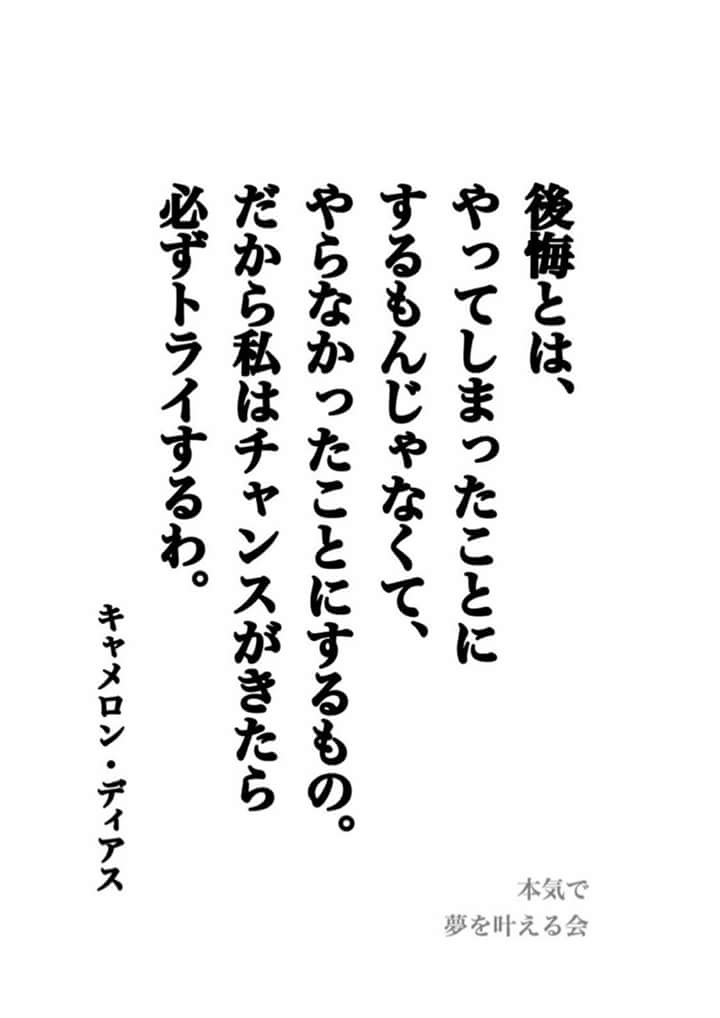 後悔とは、
やってしまったことに
するもんじゃなくて、
やらなかったことにするもの。
だから私はチャンスがきたら
必ずトライするわ。
キャメロン・ディアス
本気で
夢を叶える会